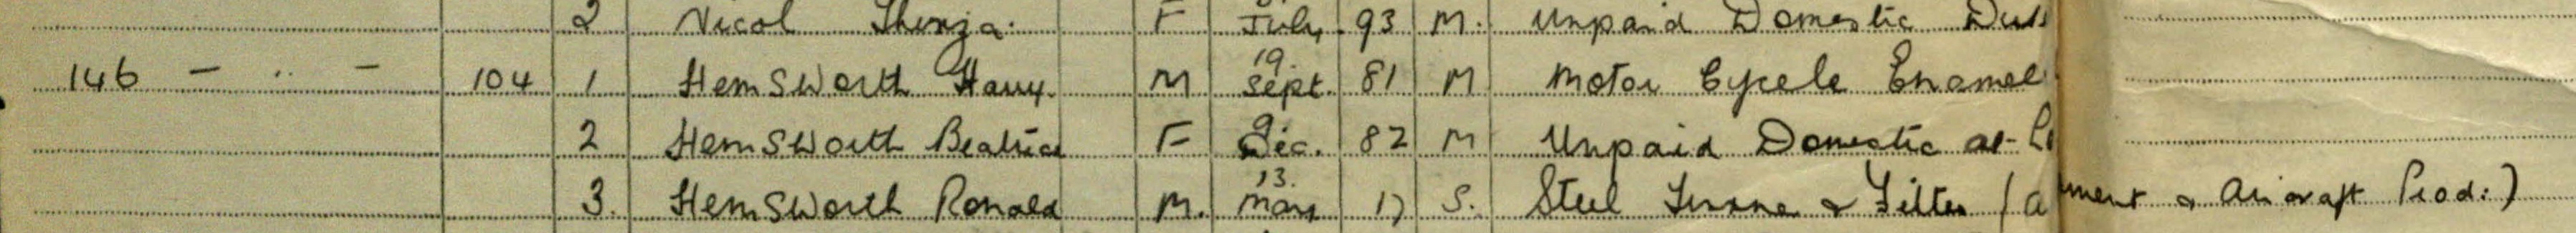 2 Nicol Thirza. F July 93 M. Unpaid Domestic Duti
146 — .. — 104 1 Hemsworth Harry. M 19 Sept. 81 M Motor Cycle Enamel
2 Hemsworth Beatrice F 9 Dec. 82 M Unpaid Domestic
3. Hemsworth Ronald M. 13. Mar 17 S. Steel Turner & Fitter (A ment & Aircraft Prod:)